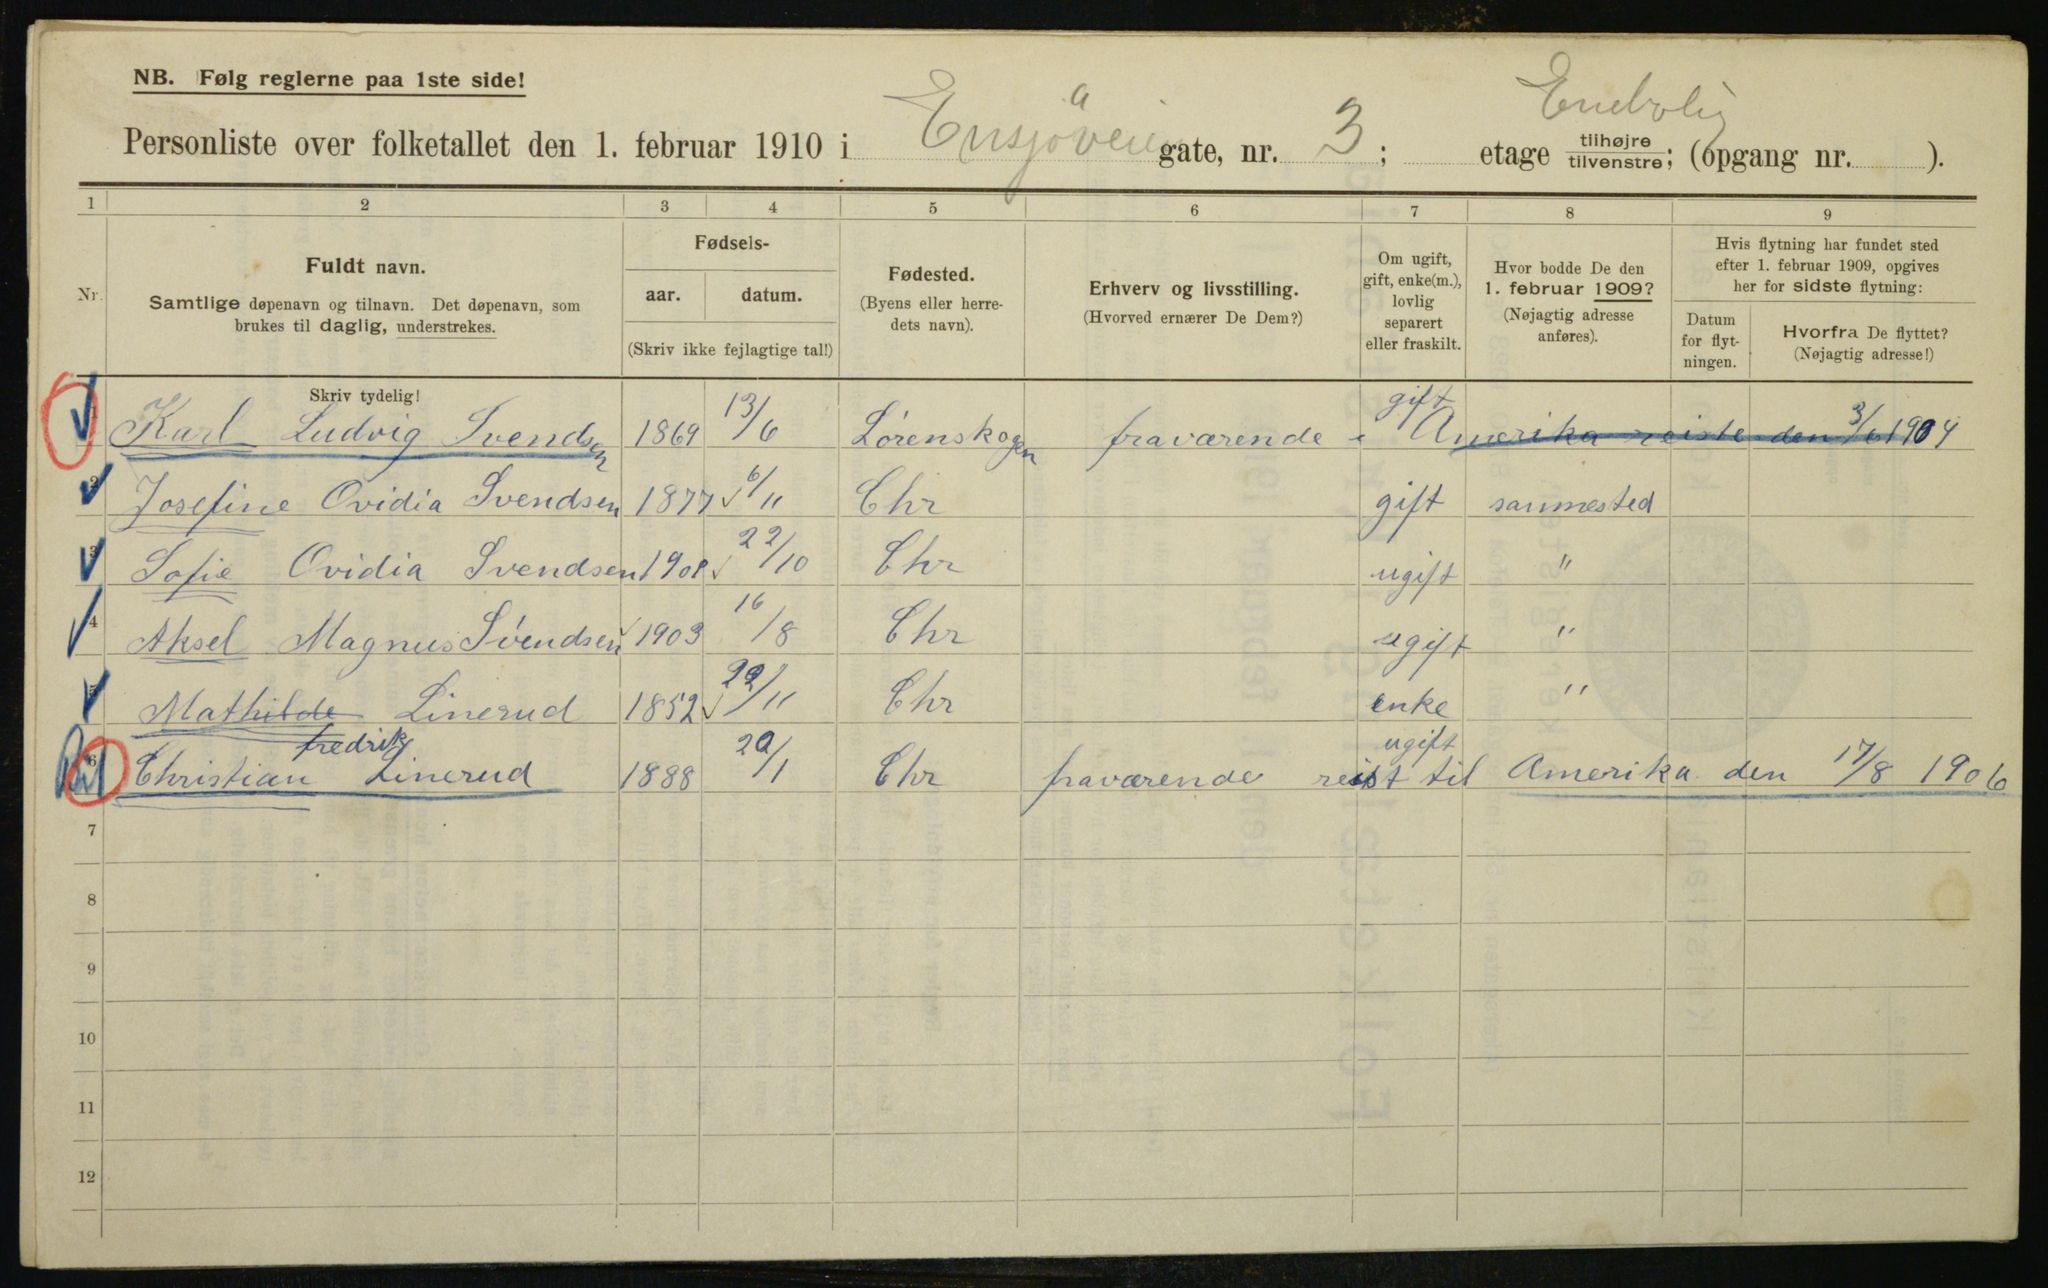 NB. Følg reglerne paa 1ste side!
Enebolig
Personliste over folketallet den 1. februar 1910 i Ensjöveien gate, nr. 3; etage tilhøjre tilvenstre; (opgang nr. ).
1 2 3 4 5 6 7 8 9
Nr.
Fuldt navn.
Samtlige døpenavn og tilnavn. Det døpenavn, som
brukes til daglig, understrekes.
Skriv tydelig!
Fødsels-
aar. datum.
(Skriv ikke fejlagtige tal!)
Fødested.
(Byens eller herre-
dets navn).
Erhverv og livsstilling.
(Hvorved ernærer De Dem?)
Om ugift,
gift, enke(m.),
lovlig
separert
eller fraskilt.
Hvor bodde De den
1. februar 1909?
(Nøjagtig adresse
anføres).
Hvis flytning har fundet sted
efter 1. februar 1909, opgives
her for sidste flytning:
Datum
for flyt-
ningen.
Hvorfra De flyttet?
(Nøjagtig adresse!)
1 Karl Ludvig Svendsen 1869 13/6 Lørenskogen fraværende i gift Amerika reiste den 3/6 1904
2 Josefine Ovidia Svendsen 1877 6/11 Chr gift sammested
3 Sofie Ovidia Svendsen 1901 22/10 Chr ugift "
4 Aksel Magnus Svendsen 1903 16/8 Chr ugift "
5 Mathilde Linerud 1852 22/11 Chr enke "
6 Christian fredrik Linerud 1888 29/1 Chr fraværende ugift reist til Amerika den 17/8 1906
7
8
9
10
11
12